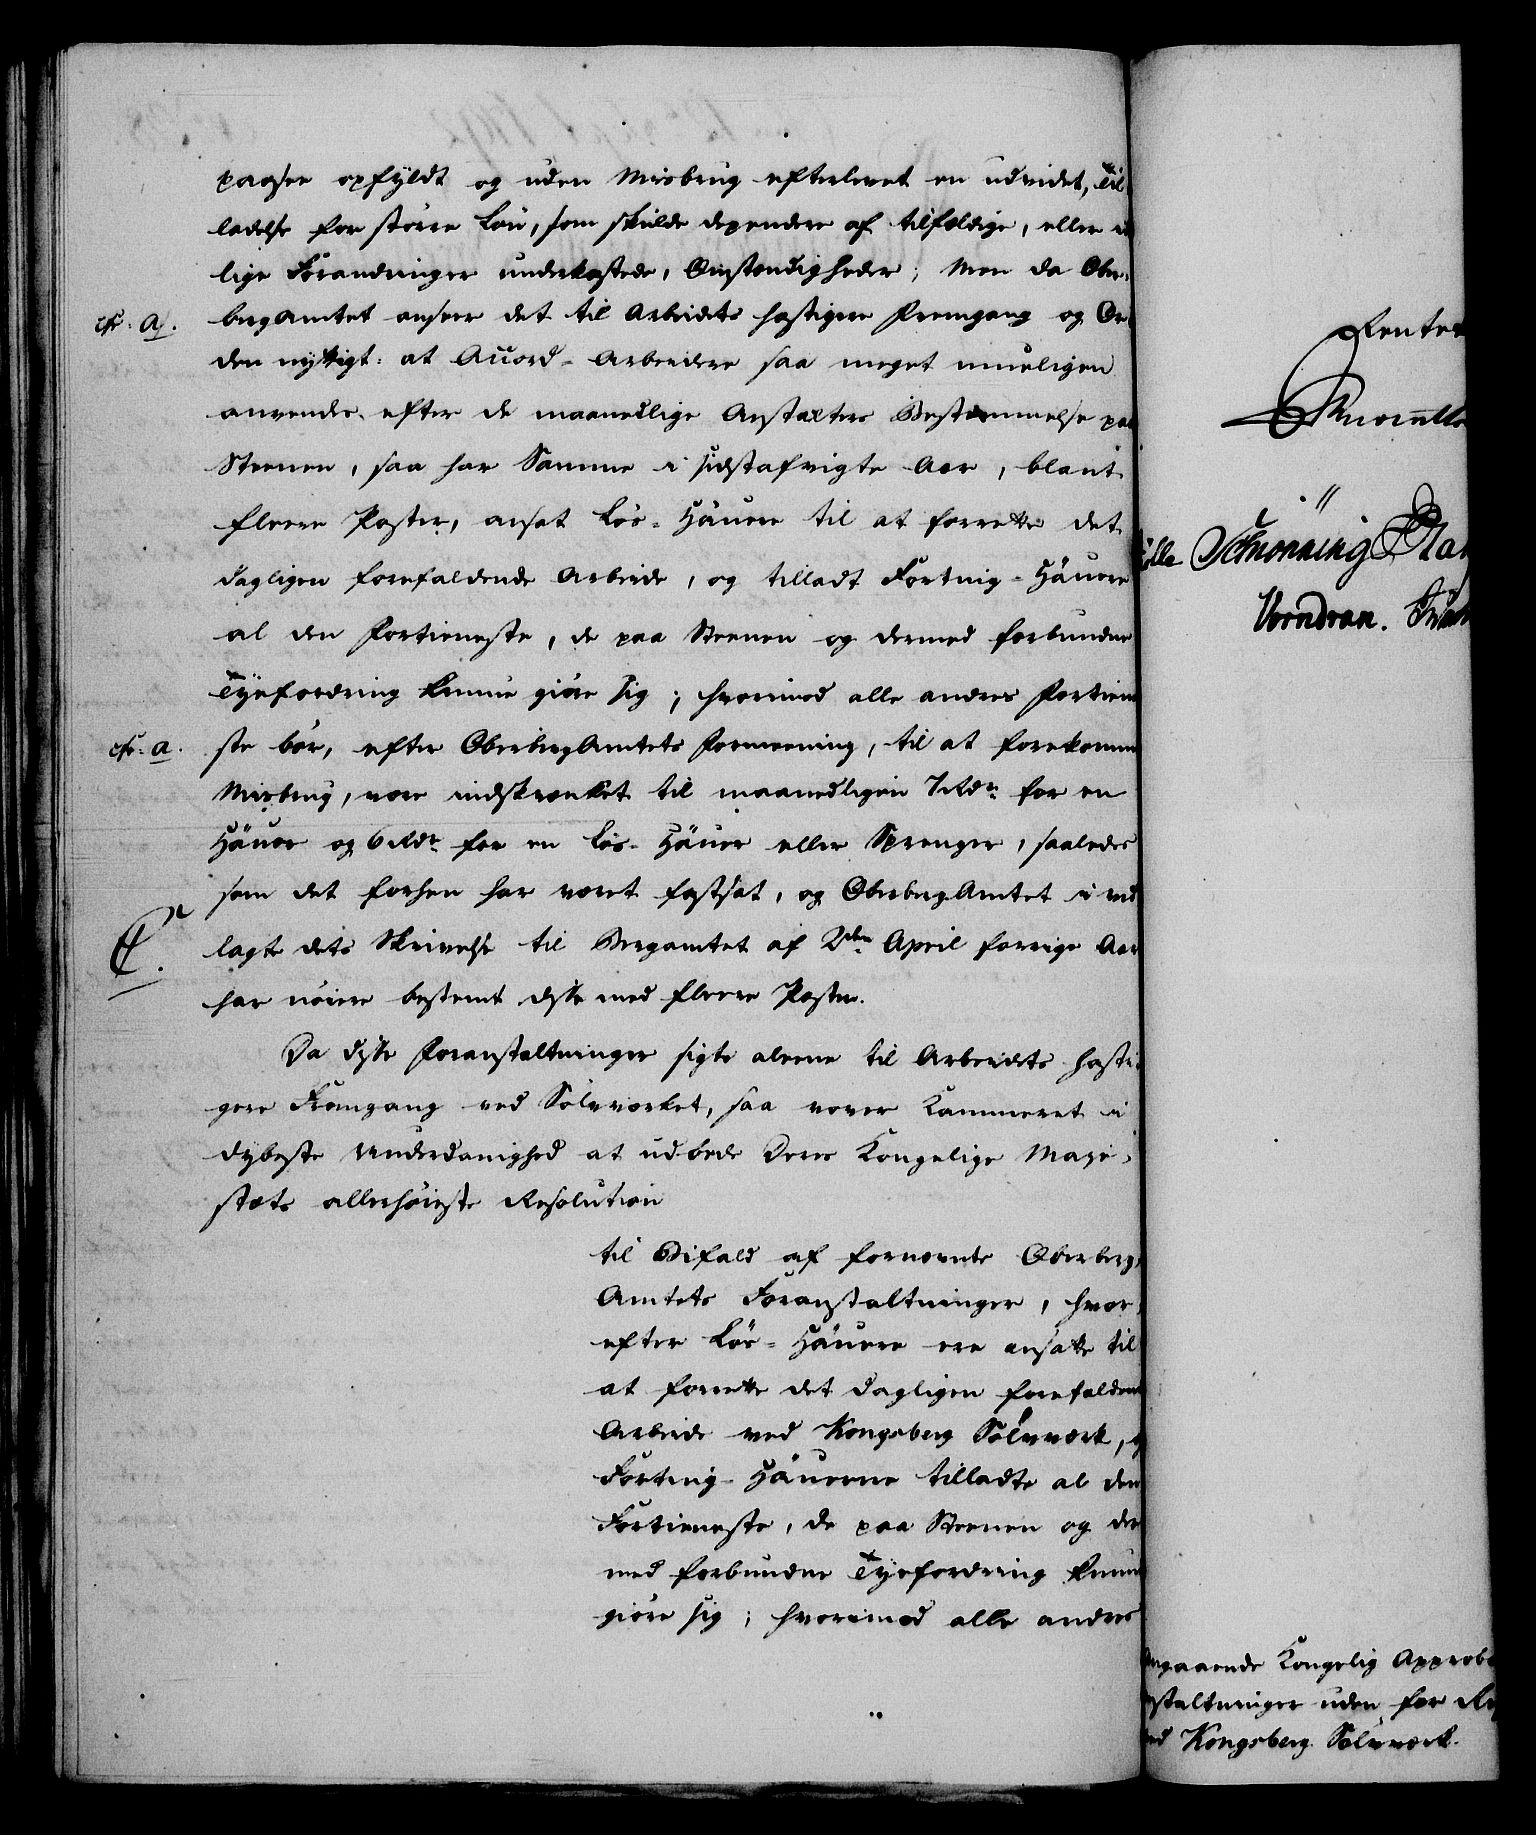 passer opfyldt og uden Misbrug efterlevet en udvidet, Til
ladelse for större Lön, som skulde dependere af tilfældige, eller
lige Forandringer underkastede, Omstændigheder; Men da Ober-
cfr. a). bergAmtet anseer det til Arbeidets hastigere Fremgang og Or
den nyttigt: at Accord-Arbeidere saa meget mueligen
anvendes efter de maanedlige Anstalters Bestemmelse paa
Steenen, saa har Samme i sidstafvigte Aar, blant
fleere Poster, ansat Lös-Häuere til at forrette det
dagligen forefaldende Arbeide, og tilladt Forting-Häuere
al den Fortieneste, de paa Steenen og dermed forbundne
Tyefordring kunne giöre sig; hvorimod alle andres Fortiene
cfr. a. ste bör, efter OberbergAmtets Formeening, til at forekomme
Misbrug, være indskrænket til maanedligen 7 Rdr for en
Häuer og 6 Rdr for en Lös-Häuer eller Sprenger, saaledes
som det forhen har været fastsat, og OberbergAmtet i ved
C. lagte dets Skrivelse til Bergamtet af 2den April forrige Aar
har nöiere bestemt disse med fleere Poster.
Da disse Foranstaltninger sigte aleene til Arbeidets hasti-
gere Fremgang ved Sölvværket, saa vover Kammeret i
dybeste Underdanighed at udbede Deres Kongelige Maje-
stæts allerhöieste Resolution
til Bifald af fornævnte Oberberg-
Amtets Foranstaltninger, hvor-
efter Lös-Häuere ere ansatte til
at forrette det dagligen forefalden
Arbeide ved Kongsberg Sölvværk,
Forting-Häuerne tilladte al den
Fortieneste, de paa Steenen og der
med forbundne Tyefordring kunne
giöre sig; hvorimod alle andres
Rentek
Schionning
Vorndran.
angaaende Kongelig Approba
staltninger uden for
ved Kongsberg Sölvværk.